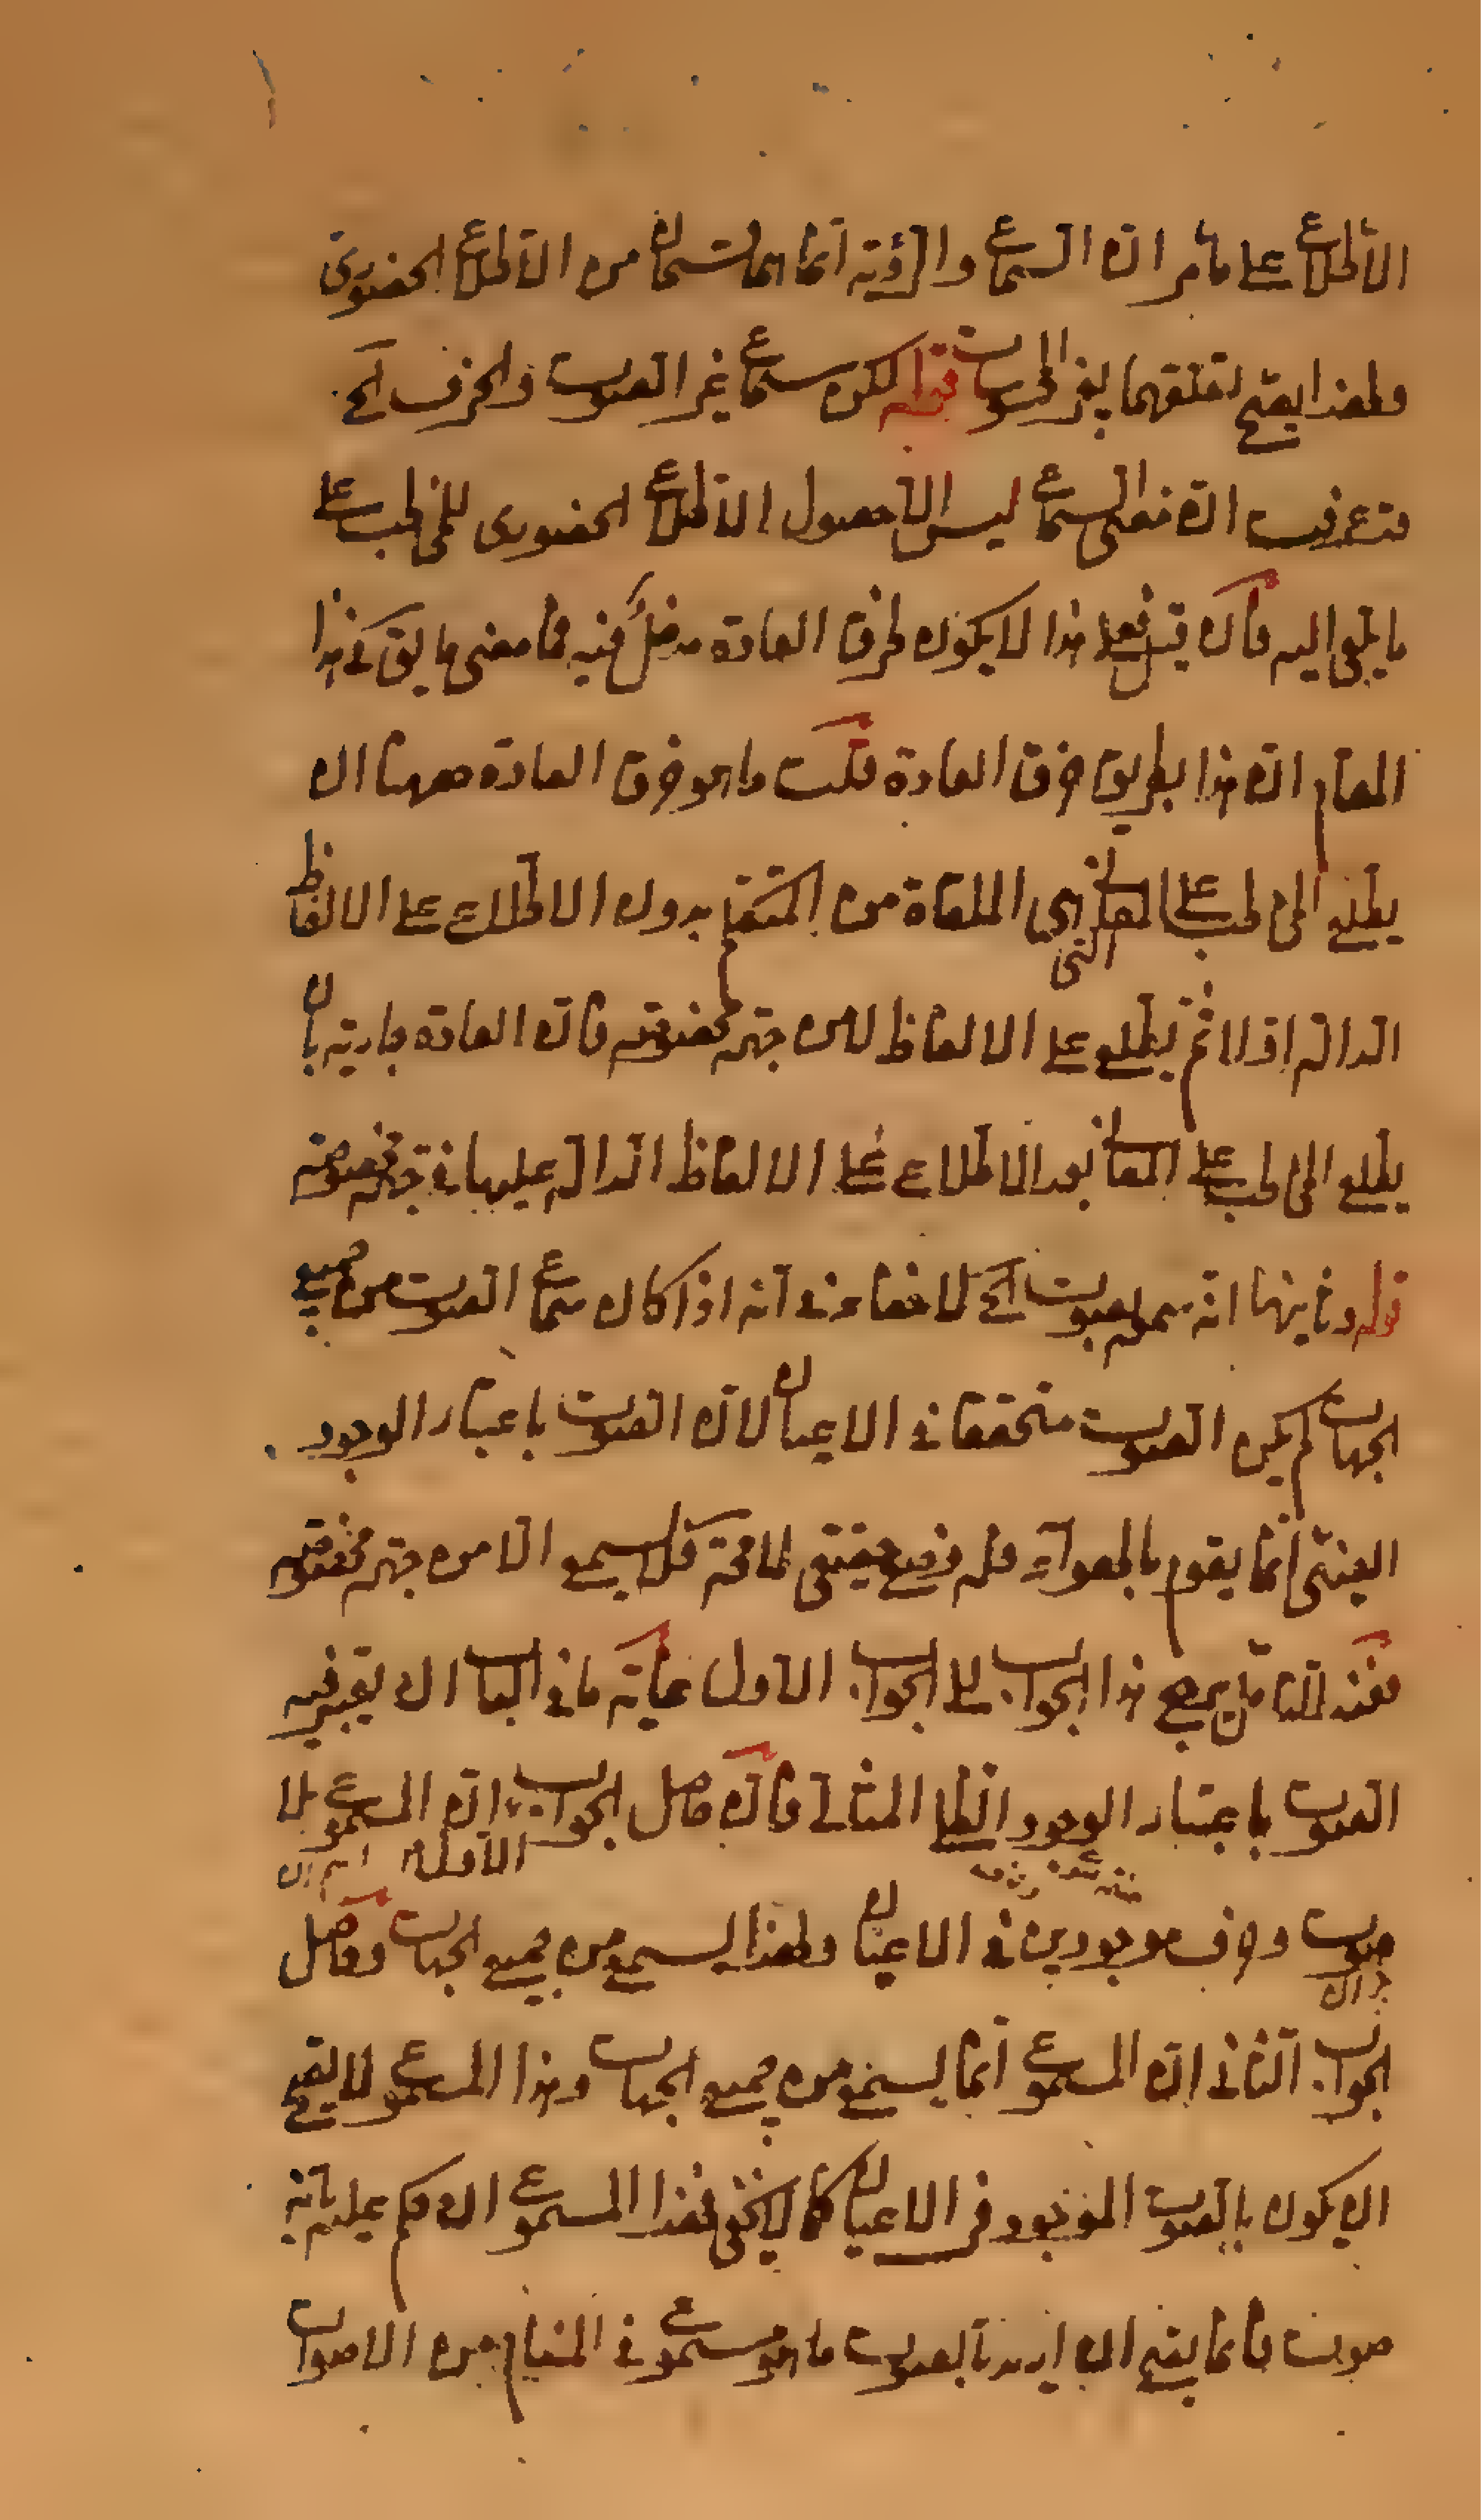 الاطلاع على ما مر ان السماع والرؤية انما هما قسمان من الاطلاع الحضورى
ولهذا يصح تعلقهما بغير المحسوسات قوله لكن سماع غير الصوت والحرف الخ
فتعرف ان معنى السماع ليس الا حصول الاطلاع الحضورى للمخاطب على
ما يلقى اليه فان قيل فعلى هذا لا يكون لخرق العادة مدخل فيه فما معنى ما يقال فى هذا
المقام ان هذا بطريق خرق العادة قلت ما هو خرق العادة ههنا ان
يطلع المخاطب على المعانى الملقاة من المتكلم بدون الاطلاع على الالفاظ
التى
الدالة اولا ثم يطلع على الالفاظ لا من جهة مخصوصة فان العادة جارية بان
يطلع المخاطب على المعانى بعد الاطلاع على الالفاظ الدالة عليها فى جهة مخصوصة
قوله وثانيهما انه سمعه بصوت الخ لا خفاء فى انه اذا كان سماع الصوت من جميع
الجهات لم يكن الصوت متحققا فى الاعيان لان الصوت باعتبار الوجود
العينى انما يقوم بالهواء فله وضع حقيقى لا محة فلا يسمع الا من جهة مخصوصة
فعند التامل يرجع هذا الجواب الى الجواب الاول غاية ما فى الباب ان يعتبر فيه
الصوت باعتبار الوجود الظلى المثالى فان حاصل الجواب ان المسموع بلا
الاول
صوت وحرف موجودين فى الاعيان ولهذا يسمع من جميع الجهات وحاصل
الجواب الثانى ان المسموع انما يسمع من جميع الجهات وهذا المسموع لا يصح
ان يكون بالصوت الموجود فى الاعيان كما لا يخفى فهذا المسموع ان حكم عليه بانه
صوت فانما يصح ان اريد بالصوت ما هو مسموع فى المنام من الاصوات